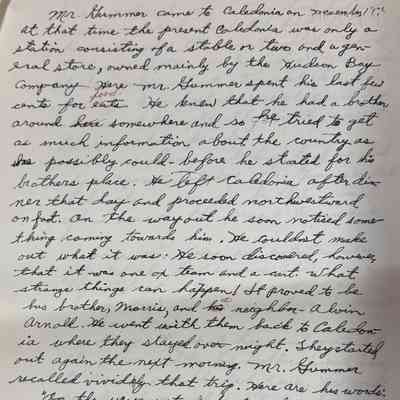 Mr. Gummer came to Caledonia on November 1st
at that time the present Caledonia was only a
station consisting of a stable or two and a gen-
eral store, owned mainly by the Hudson Bay
Company Here Mr. Gummer spent his last few
cents for eats. He knew that he had a brother
around here somewhere and so he tried to get
as much information about the country as
he possibly could - before he stated for his
brothers place. He left Caledonia after din-
ner that day and proceeded northwestward
on foot. On the way out he soon noticed some-
thing coming towards him. He couldnt make
out what it was. He soon discovered, however,
that it was one ox team and a cart. What
strange things can happen! It proved to be
his brother, Morris, and his neighbor - Alvin
Arnoll. He went with them back to Caledon-
ia where they stayed over night. They started
out again the next morning. Mr. Gummer
recalled vividly that trip. Here are his words: